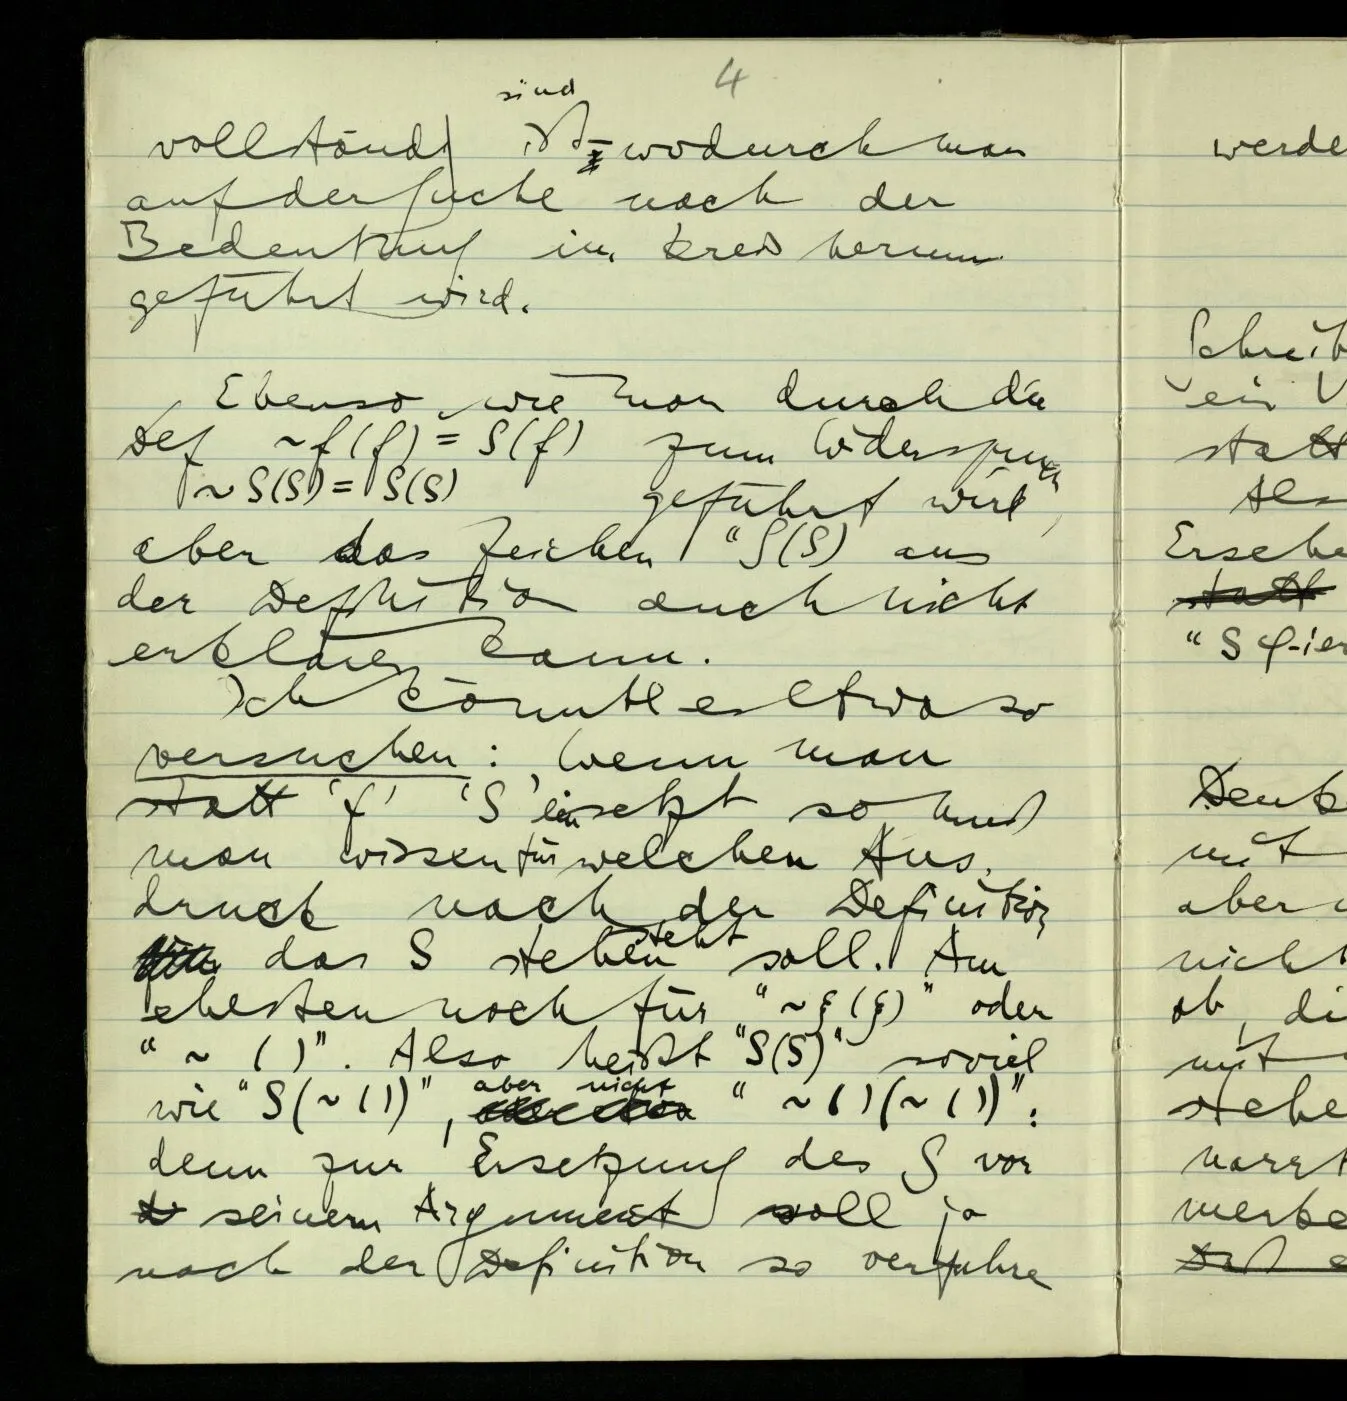 4
sind
vollständ ist, wodurch man
auf der Suche nach der
Bedeutung im Kreis herum
geführt wird.
Ebenso wie man durch die
Def ~f(f) = S(f) zum Widerspruch
~S(S) = S(S) geführt wird,
aber das Zeichen "S(S) aus
der Definition auch nicht
erklären kann.
Ich könnte es etwa so
versuchen: Wenn man
statt 'f' 'S' einsetzt so muß
man wissen für welchen Aus-
druck nach der Definition
das S stehen steht soll. Am
ehesten noch für "~ξ(ξ)" oder
"~ ( )". Also heißt "S(S)" soviel
wie "S(~( ))", aber nicht "~( )(~( ))":
denn zur Ersetzung des S vor
seinem Argument soll ja
nach der Definition so verfahre
werde
Schreib
ein V
statt
Als
Ersche
statt
"S φ-ier
Denk
mit
aber
nicht
ob, di
mit
stehe
merke